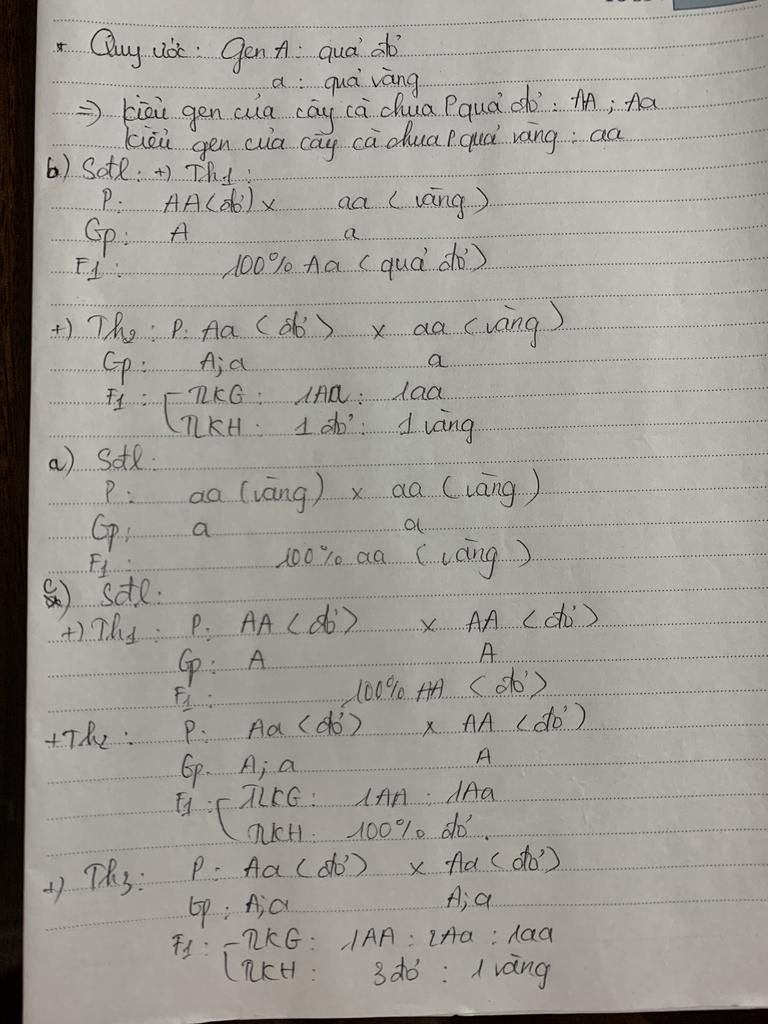 * Quy ước: Gen A: quả đỏ
a: quả vàng
=> kiểu gen của cây cà chua P quả đỏ: AA; Aa
kiểu gen của cây cà chua P quả vàng: aa
b) Sđtl: +) Th1:
P: AA (đỏ) x aa (vàng)
Gp: A a
F1: 100% Aa (quả đỏ)
+) Th2: P: Aa (đỏ) x aa (vàng)
Gp: A; a a
F1: TLKG: 1Aa: 1aa
TLKH: 1 đỏ: 1 vàng
a) Sđtl:
P: aa (vàng) x aa (vàng)
Gp: a a
F1: 100% aa (vàng)
c) Sđtl:
+) Th1: P: AA (đỏ) x AA (đỏ)
Gp: A A
F1: 100% AA (đỏ)
+ Th2: P: Aa (đỏ) x AA (đỏ)
Gp. A; a A
F1: TLKG: 1AA: 1Aa
TLKH: 100% đỏ.
+) Th3: P: Aa (đỏ) x Aa (đỏ)
Gp: A; a A; a
F1: TLKG: 1AA: 2Aa: 1aa
TLKH: 3 đỏ: 1 vàng